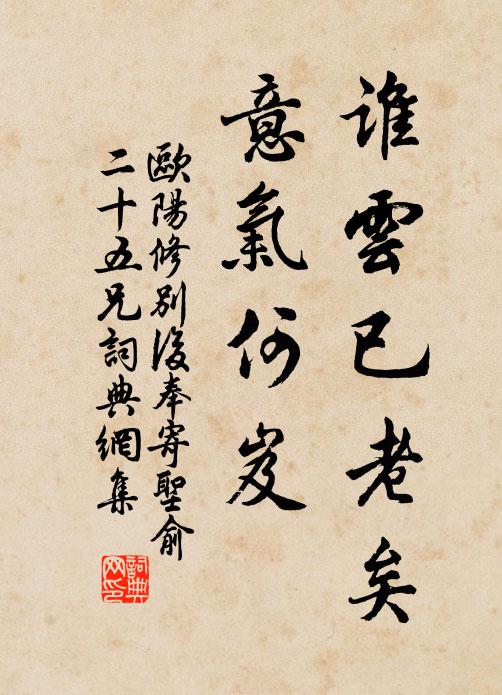 誰雲已老矣
意氣何岌
歐陽修別後奉寄聖俞
二十五兄詞典網集
詞典
网印